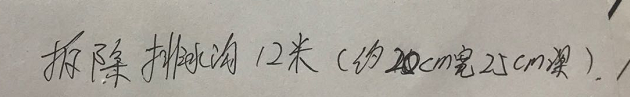 拆除排水沟12米（约20cm宽25cm深）.